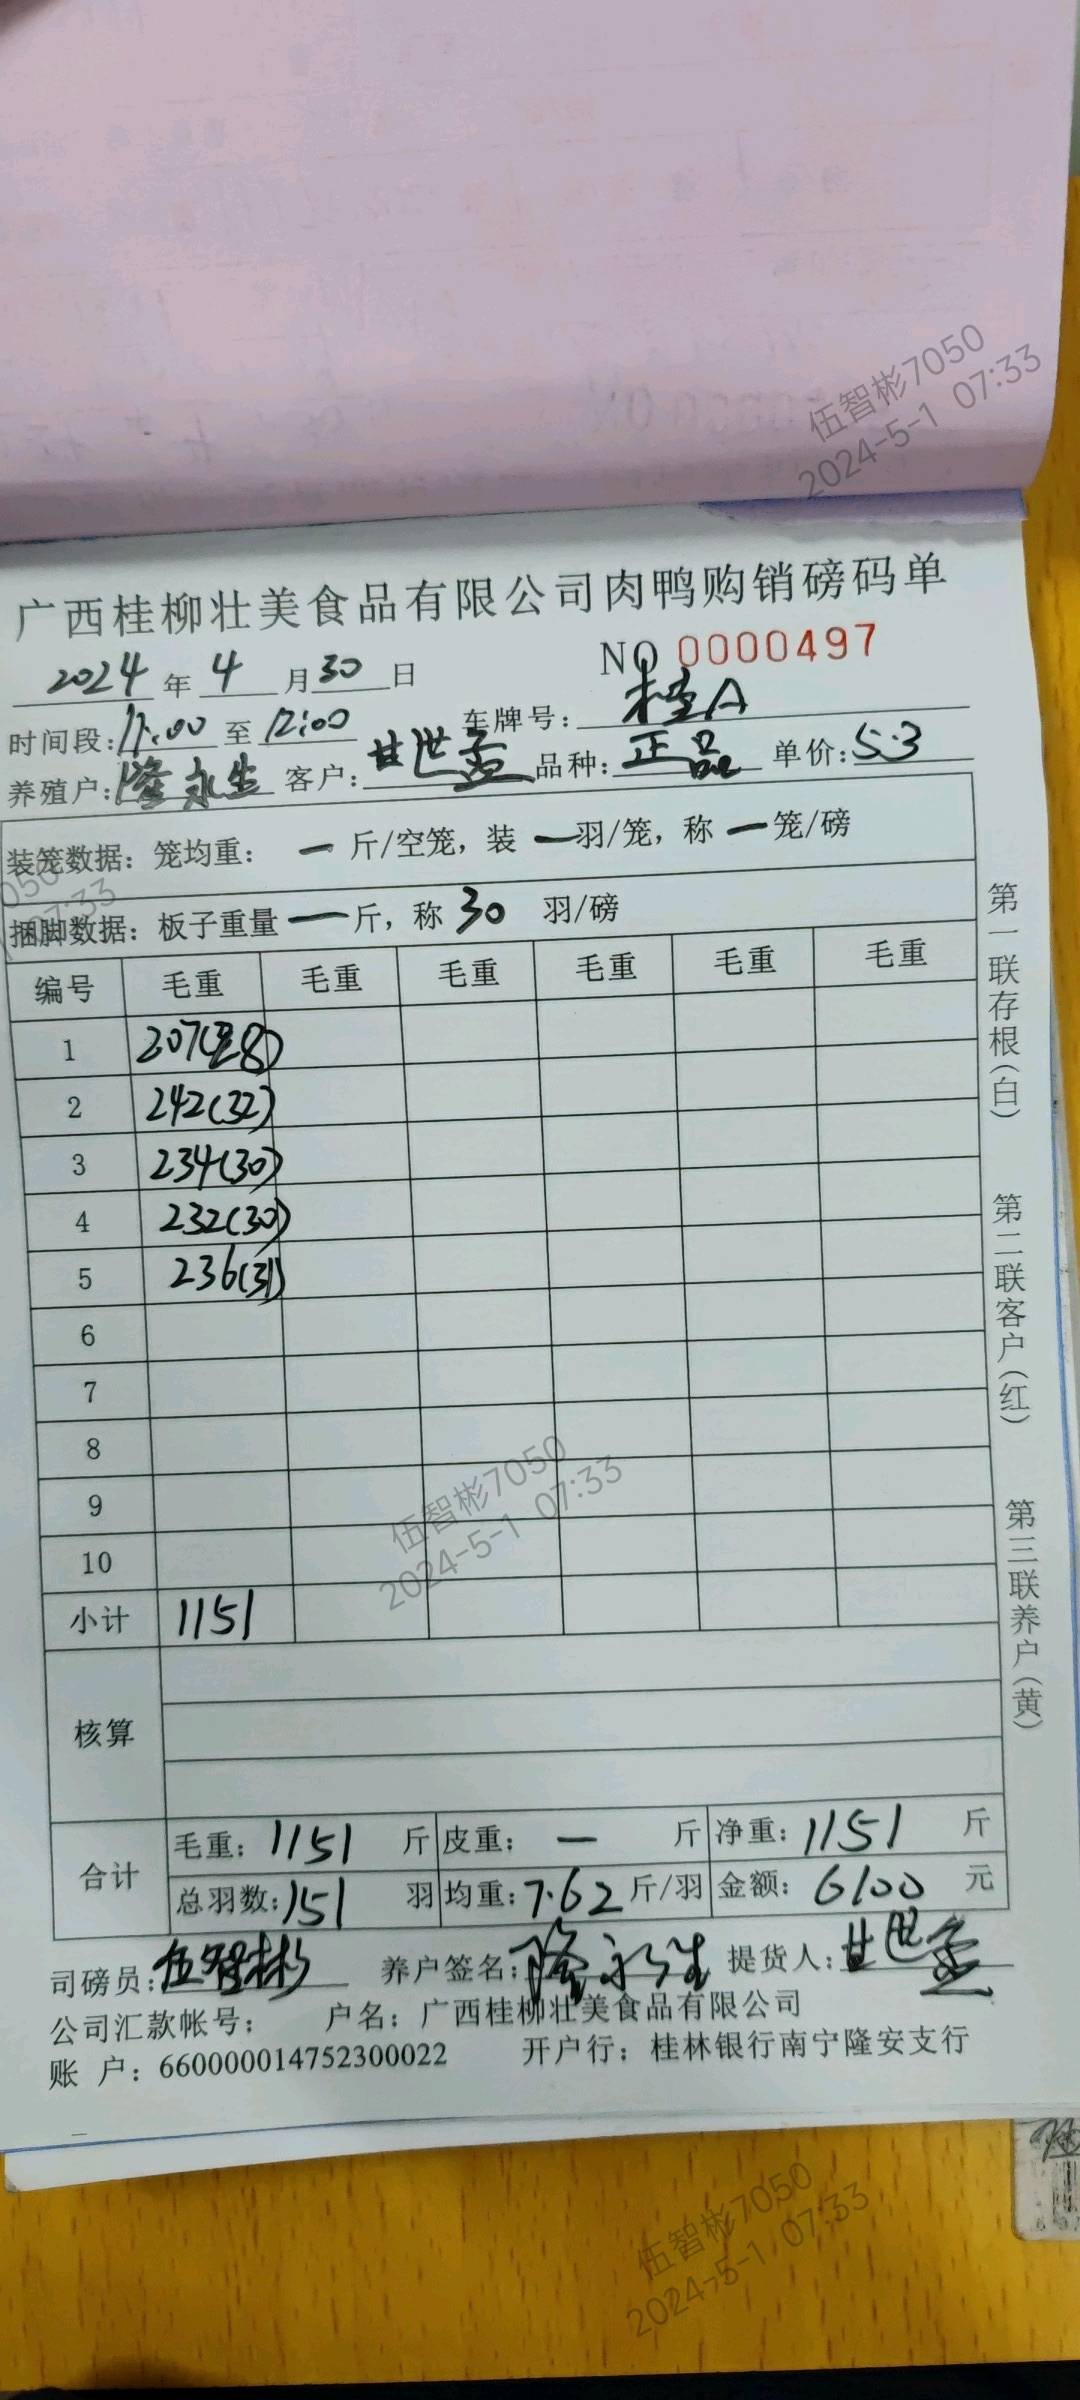 伍智彬7050
2024-5-1 07:33
广西桂柳壮美食品有限公司肉鸭购销磅码单
2024 年 4 月 30 日 NO 0000497
时间段: 11:00 至 12:00 车牌号: 桂A
养殖户: 隆永生 客户: 甘世孟 品种: 正品 单价: 5.3
装笼数据: 笼均重: 一 斤/空笼, 装 一 羽/笼, 称 一 笼/磅
捆脚数据: 板子重量 一 斤, 称 30 羽/磅
编号 毛重 毛重 毛重 毛重 毛重 毛重
1 207(28)
2 242(32)
3 234(30)
4 232(30)
5 236(31)
6
7
8
9
10
小计 1151
核算
合计 毛重: 1151 斤 皮重: 一 斤 净重: 1151 斤
总羽数: 151 羽 均重: 7.62 斤/羽 金额: 6100 元
司磅员: 伍智彬 养户签名: 隆永生 提货人: 甘世孟
公司汇款帐号: 户名: 广西桂柳壮美食品有限公司
账 户: 660000014752300022 开户行: 桂林银行南宁隆安支行
第一联存根(白)
第二联客户(红)
第三联养户(黄)
050
07:33
伍智彬7050
2024-5-1 07:33
伍智彬7050
2024-5-1 07:33